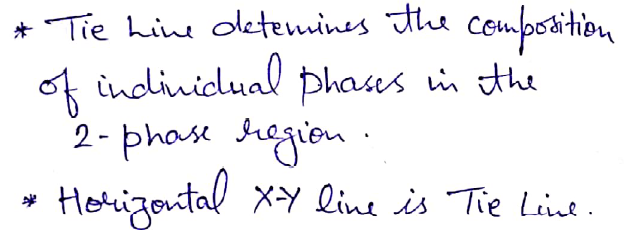 * Tie Line determines the composition
of individual phases in the
2-phase region.
* Horizontal X-Y line is Tie Line.